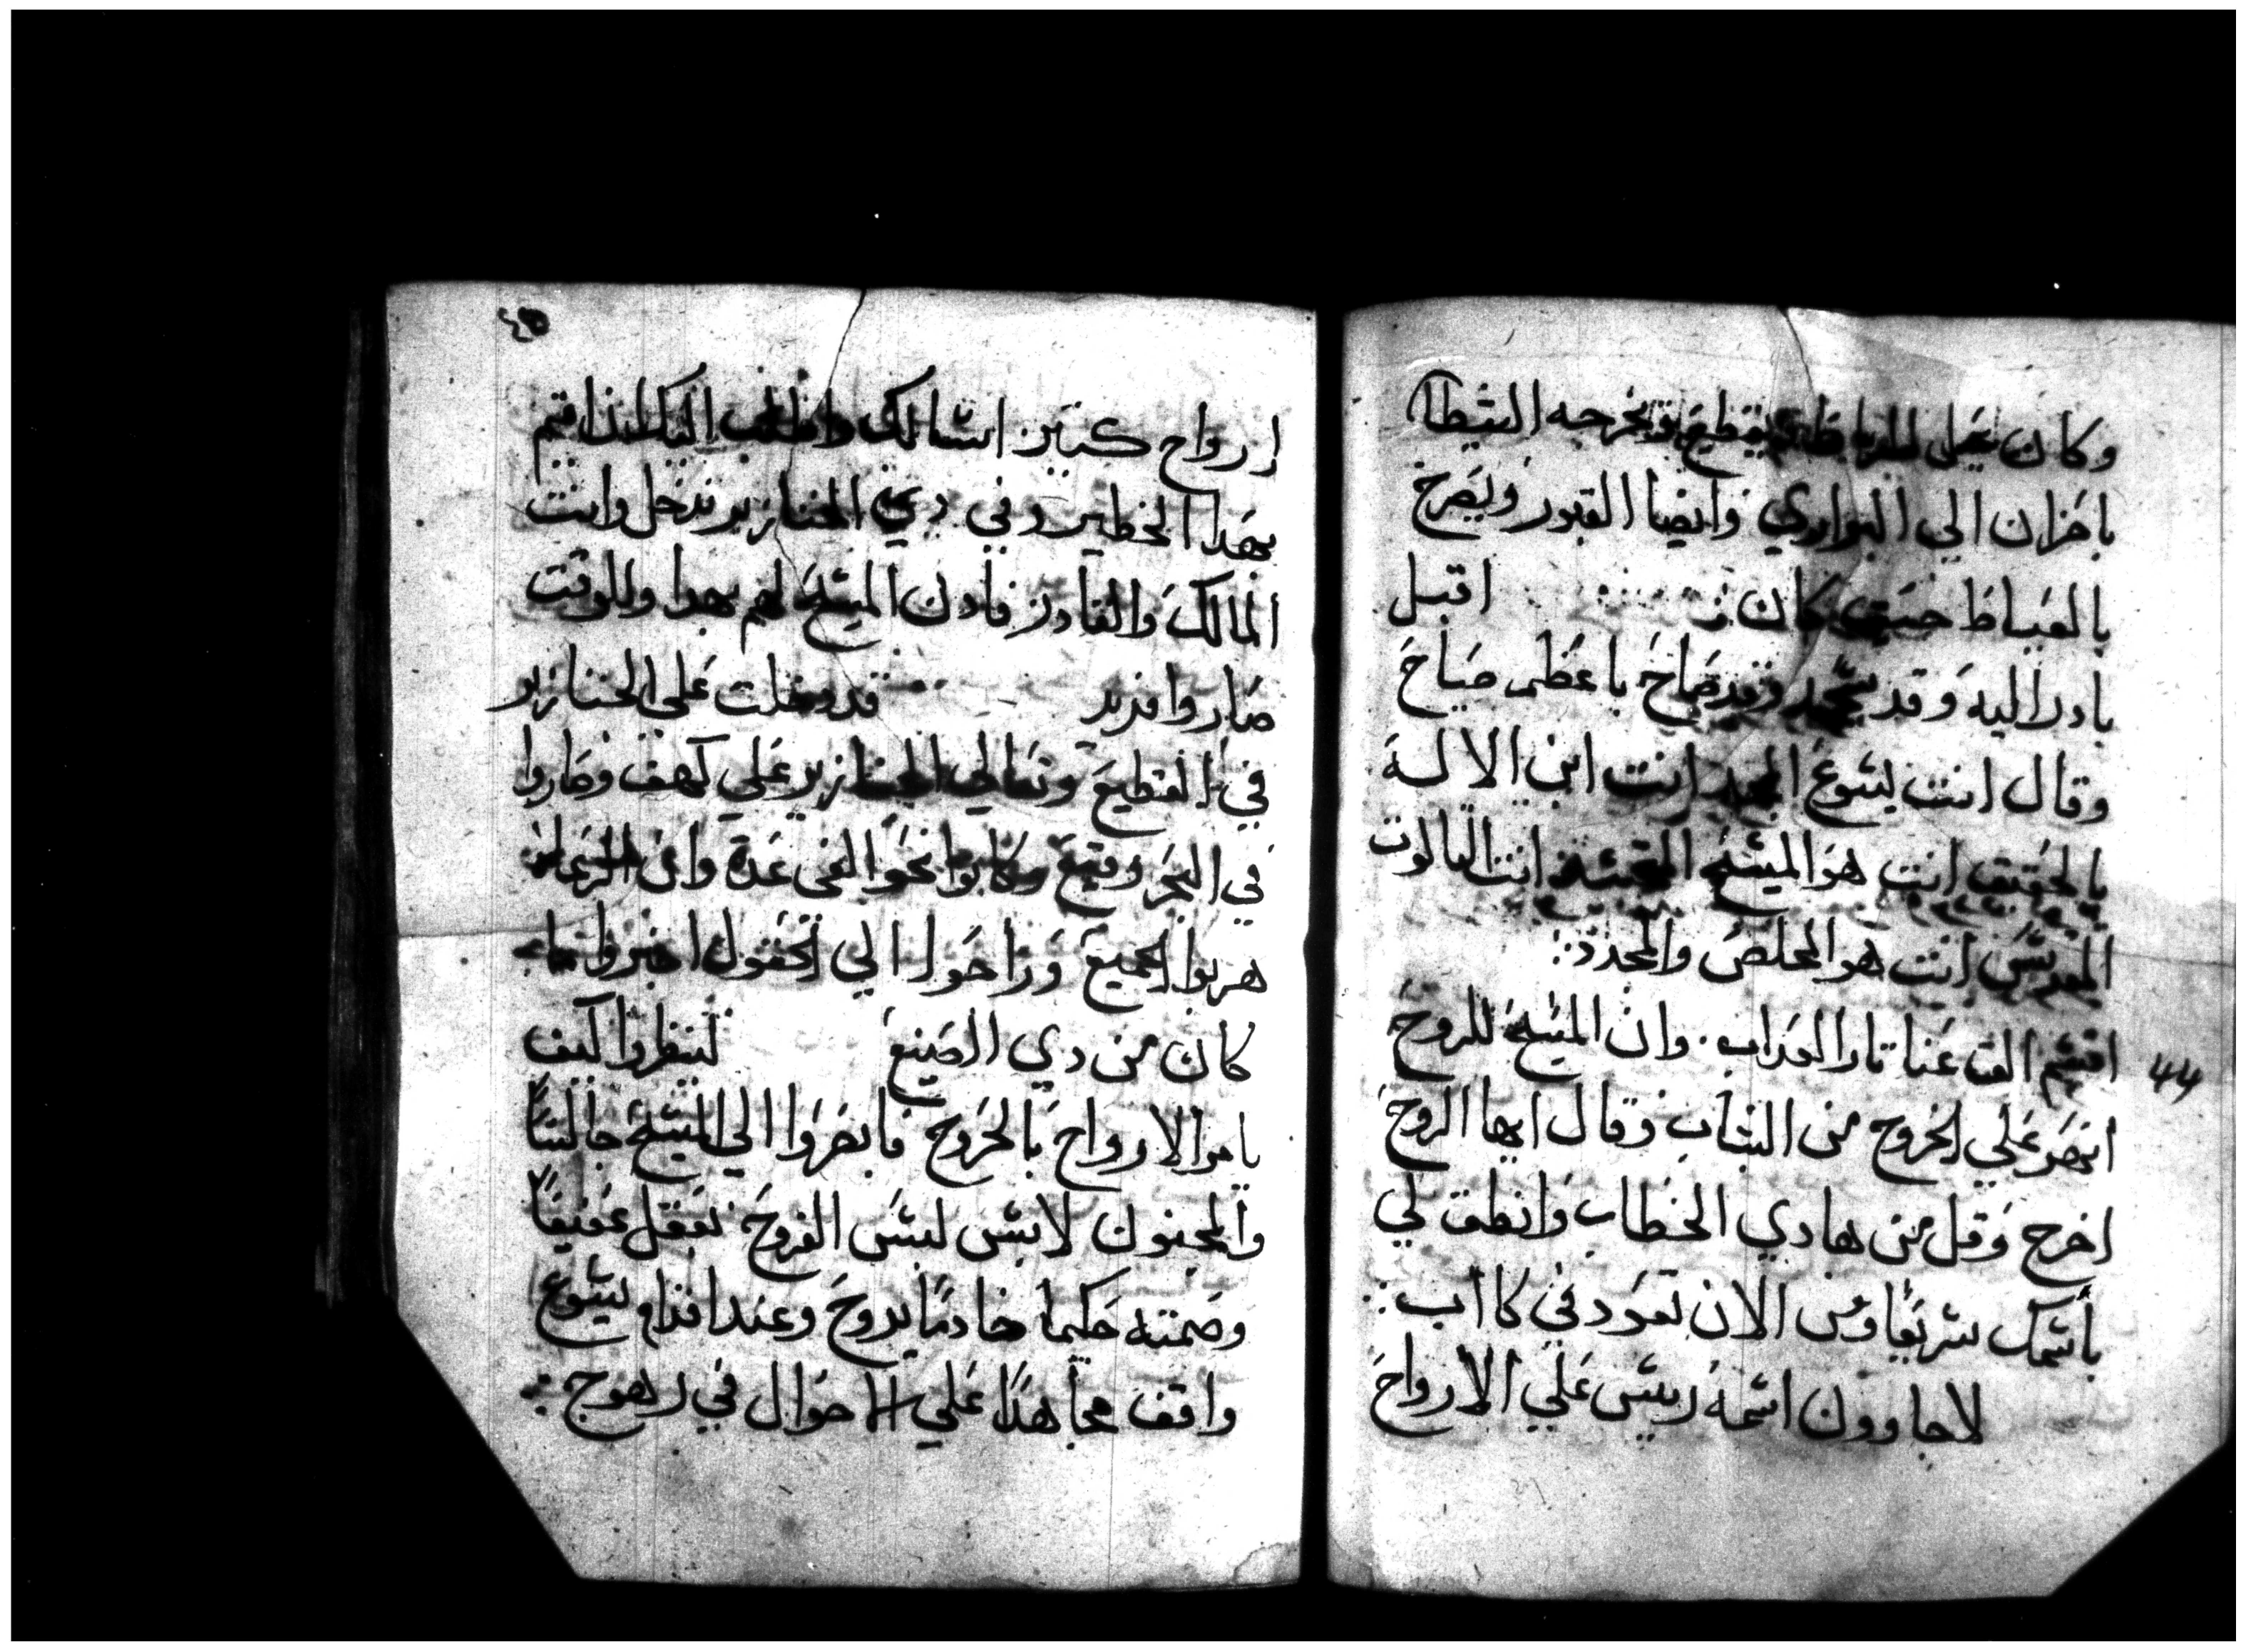 وكان يقطع تخرجه الشيطان
باحزان الي البراري وايضا القبور ويصرخ
بالعياط حيتي كان اقبل
بادر اليه وقد سجد وقد صاح باعظم صياح
وقال انت يسوع المجد انت ابن الالة
بالحقيق انت هو المسيح انت التالوت
المقدس انت هو المخلص والمجدد
44
اقسم الق عنا نار العداب. وان المسيح للروح
انهر علي الخروج من الشاب وقال ايها الروح
اخرج وقل من هادي الخطاب وانطق لي
باسمك سريعا ومن الان تعود في كااب
لاجاوون اسمه رييس علي الارواح
٤٥
ارواح كتير اسالك واطلب اليك
بهدا الخطير وفي دي الخنازير ندخل وانت
المالك والقادر فادن المسيح لهم بهدا وللوقت
صاروا فريد قد دخلت على الخنازير
في القطيع الخنازير علي كهف وصاروا
في البحر وقيع وكانوا نحو الفي عدة وان
هربوا الجميع وراحوا الي الحقول اخبروا بما
كان من دي الصنيع لينظروا كيف
يامر الارواح بالخروج فابصروا الي المسيح جالسًا
والمجنون لابس لبس الفروج بعقل عفيفًا
وصمته حكيما خادمًا بروح وعند اقدام يسوع
واقف مجاهدًا علي الاحوال في رهوج